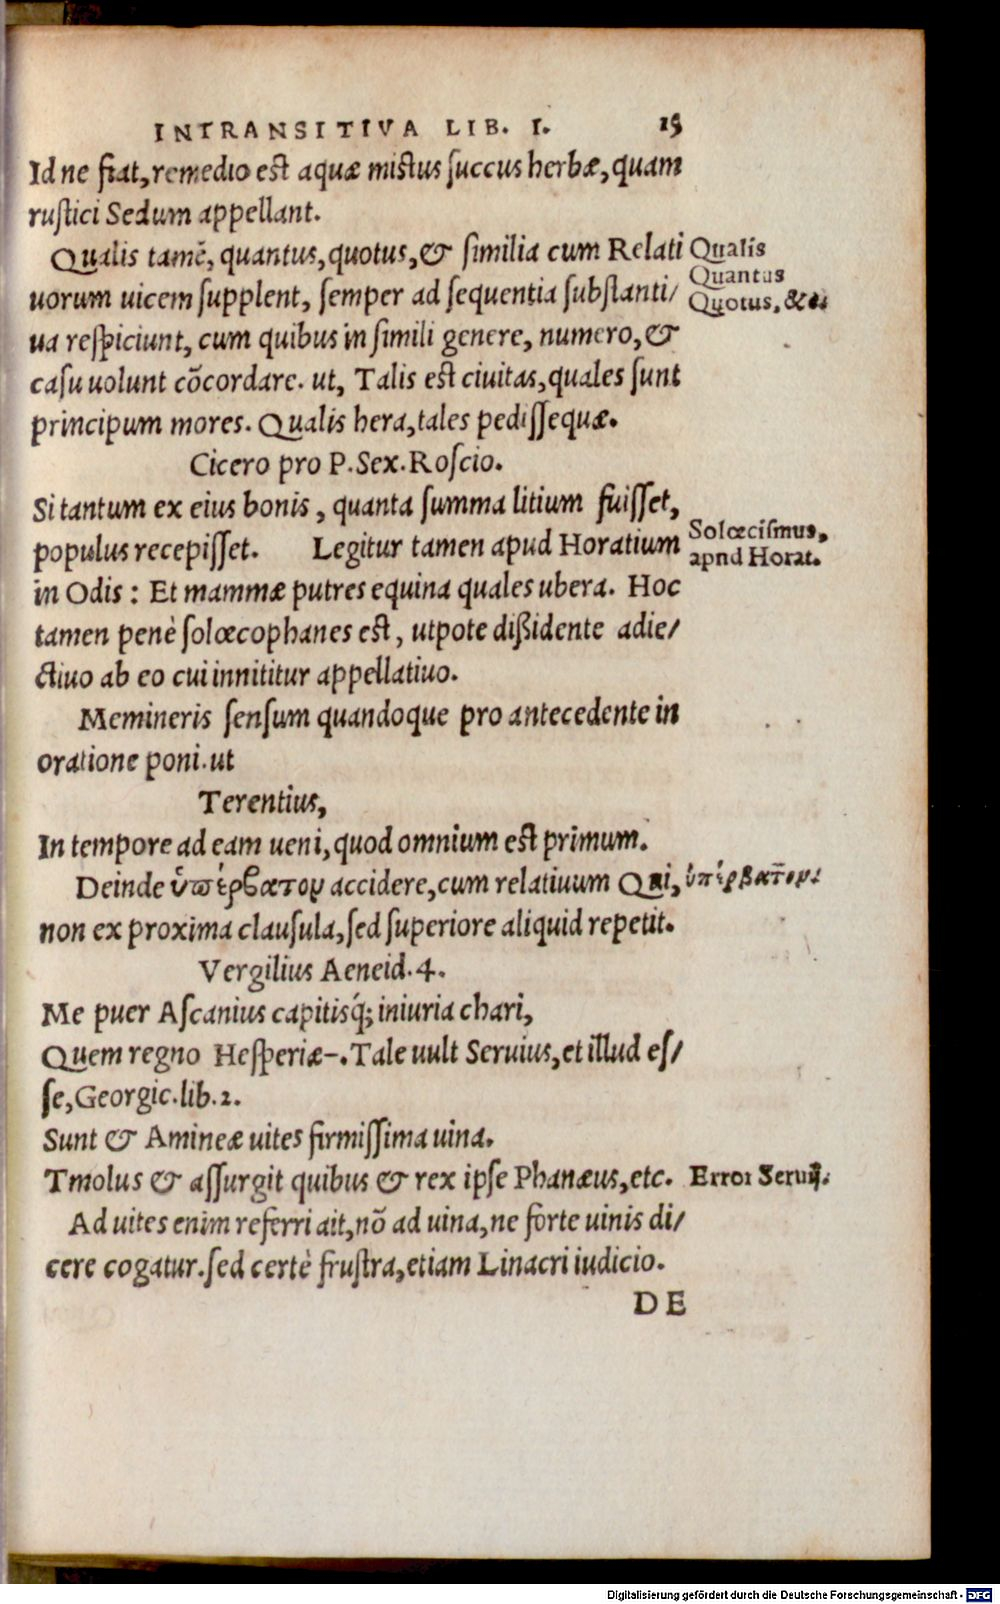 INTRANSITIVA LIB. I. 15
Id ne fiat, remedio est aquæ mistus ſuccus herbæ, quam
ruſtici Sedum appellant.
Qualis tamē, quantus, quotus, & ſimilia cum Relati
uorum uicem ſupplent, ſemper ad ſequentia ſubſtanti/
ua reſpiciunt, cum quibus in ſimili genere, numero, &
caſu uolunt cōcordare. ut, Talis est ciuitas, quales ſunt
principum mores. Qualis hera, tales pediſſequæ.
Qualis
Quantus
Quotus, &c.
Cicero pro P. Sex. Roſcio.
Si tantum ex eius bonis, quanta ſumma litium fuiſſet,
populus recepiſſet. Legitur tamen apud Horatium
in Odis : Et mammæ putres equina quales ubera. Hoc
tamen penè ſolœcophanes est, utpote dißidente adie/
ctiuo ab eo cui innititur appellatiuo.
Solœciſmus,
apnd Horat.
Memineris ſenſum quandoque pro antecedente in
oratione poni. ut
Terentius,
In tempore ad eam ueni, quod omnium est primum.
Deinde ὑπέρβατον accidere, cum relatiuum Qui,
non ex proxima clauſula, ſed ſuperiore aliquid repetit.
ὑπέρβατον.
Vergilius Aeneid. 4.
Me puer Aſcanius capitisq́; iniuria chari,
Quem regno Heſperiæ–. Tale uult Seruius, et illud eſ/
ſe, Georgic. lib. 2.
Sunt & Amineæ uites firmiſſima uina.
Tmolus & aſſurgit quibus & rex ipſe Phanæus, etc.
Error Seruij.
Ad uites enim referri ait, nō ad uina, ne forte uinis di/
cere cogatur. ſed certè fruſtra, etiam Linacri iudicio.
DE
Digitalisierung gefördert durch die Deutsche Forschungsgemeinschaft - DFG